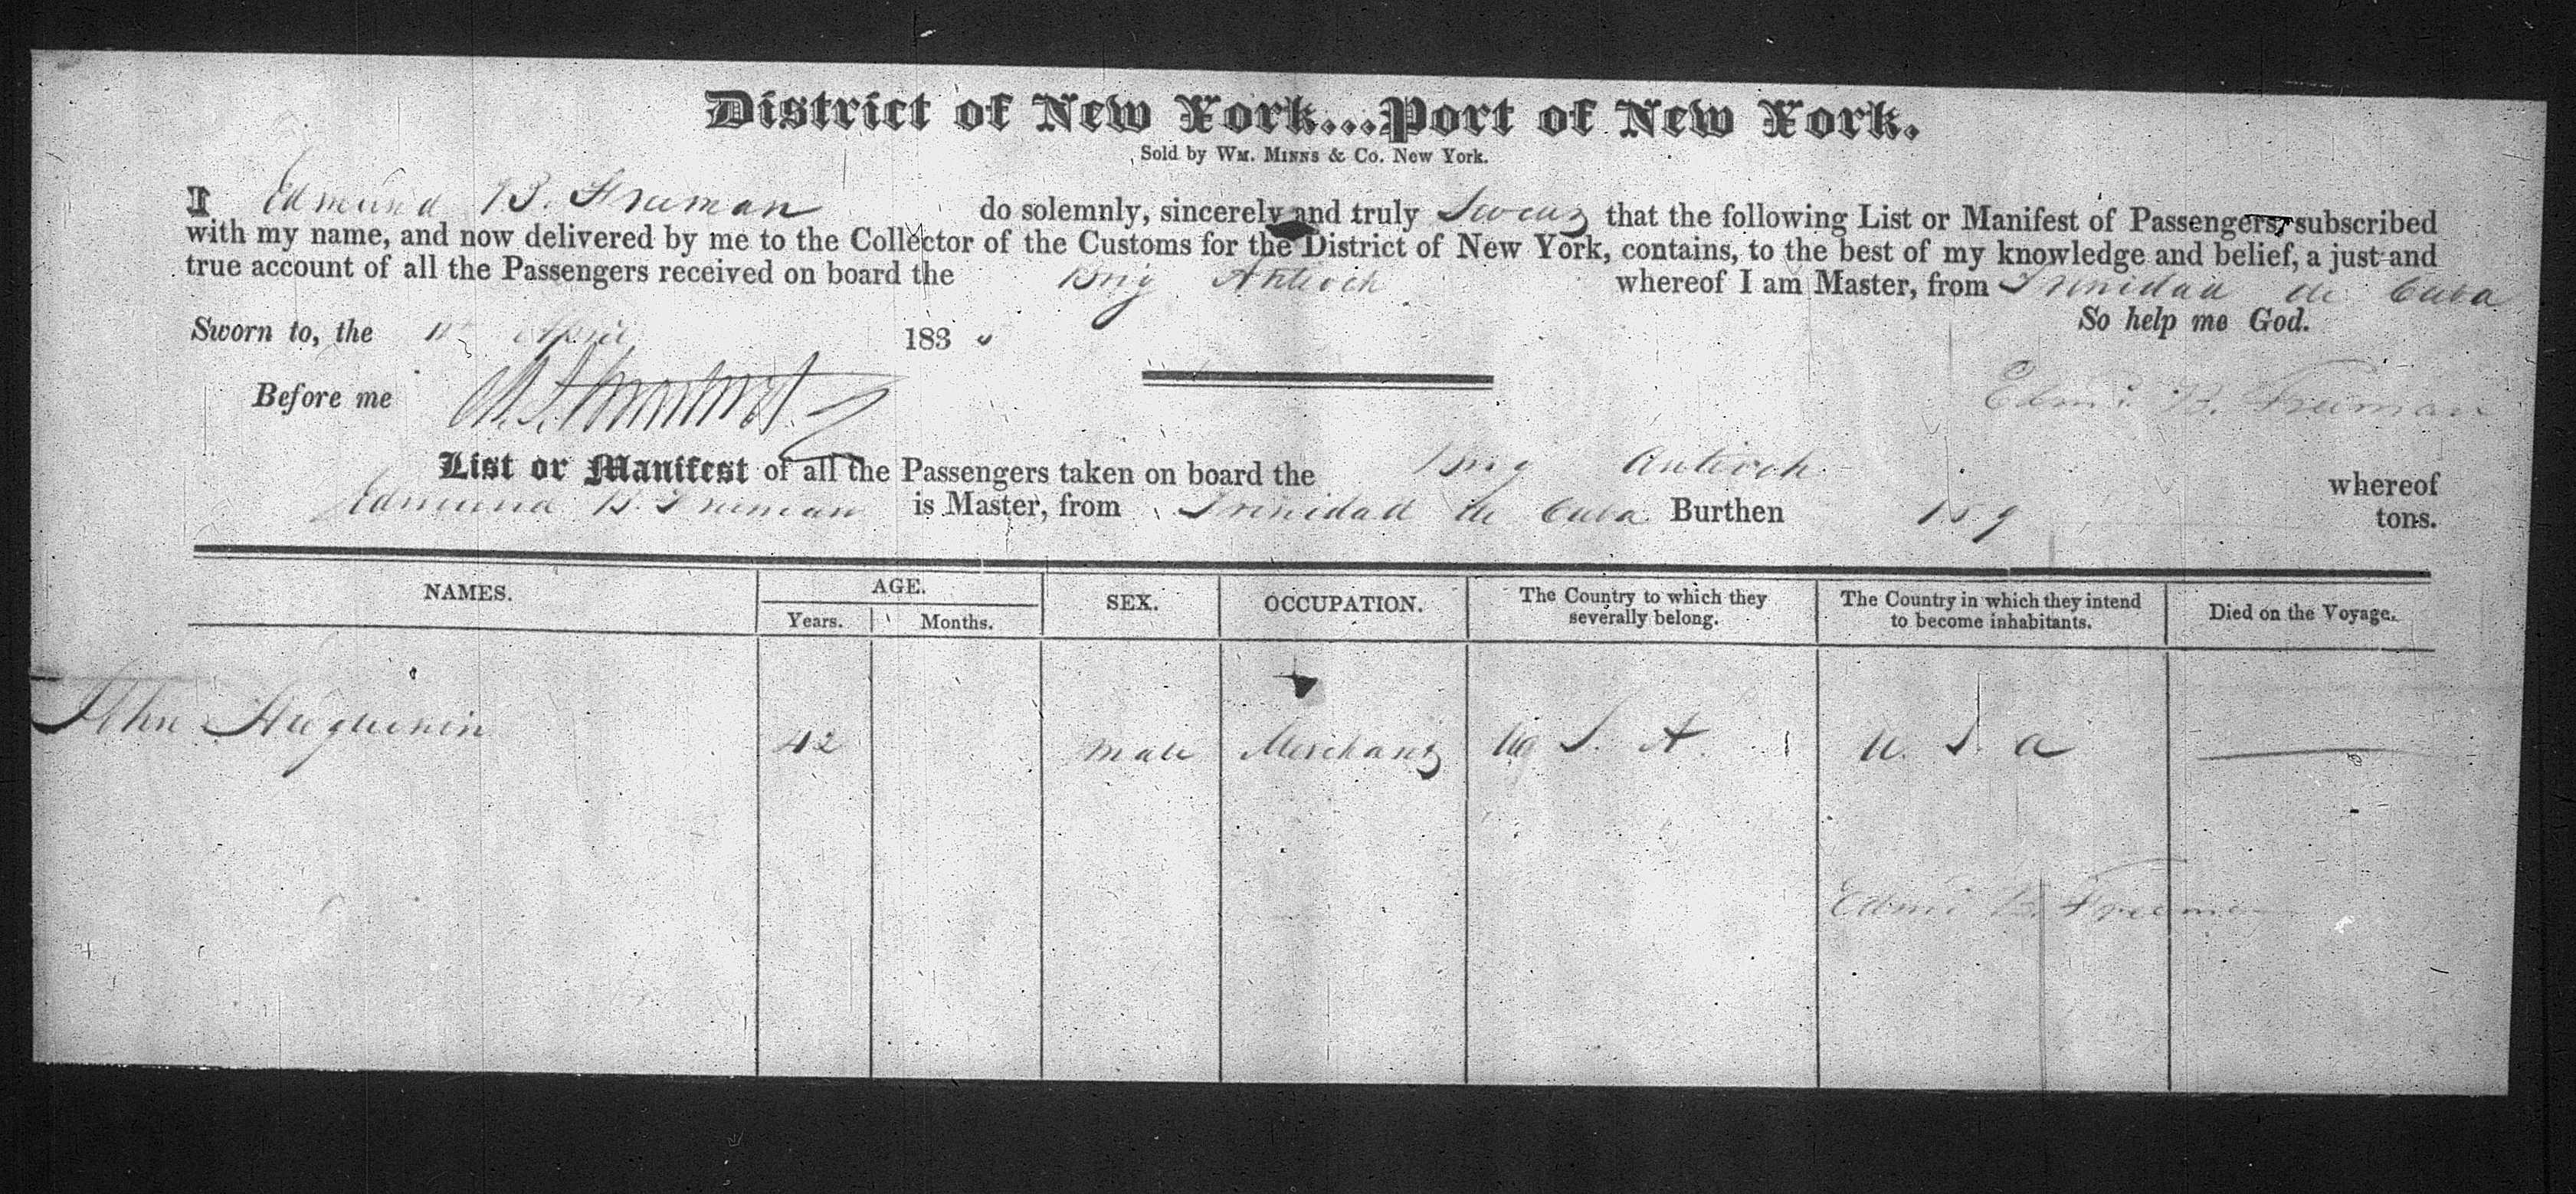 District of New York...Port of New York.
Sold by Wm. Minns & Co. New York.
I Edmund B. Freeman do solemnly, sincerely and truly Swear that the following List or Manifest of Passengers, subscribed
with my name, and now delivered by me to the Collector of the Customs for the District of New York, contains, to the best of my knowledge and belief, a just and
true account of all the Passengers received on board the Brig Antioch whereof I am Master, from Trinidad de Cuba
So help me God.
Sworn to, the April 183
Before me
Edm. B. Freeman
List or Manifest of all the Passengers taken on board the Brig Antioch whereof
Edmund B. Freeman is Master, from Trinidad de Cuba Burthen 159 tons.
NAMES. AGE. SEX. OCCUPATION. The Country to which they severally belong. The Country in which they intend to become inhabitants. Died on the Voyage.
Years. Months.
John Huguenin 42 male Merchant U S. A. U. S. A
Edm. B. Freeman